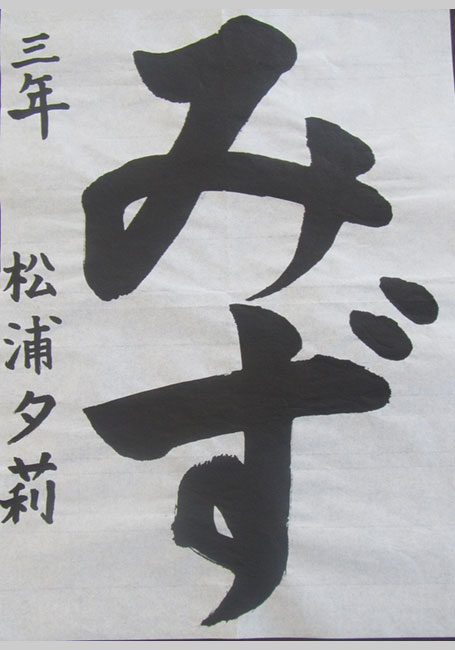 みず
三年 松浦夕莉